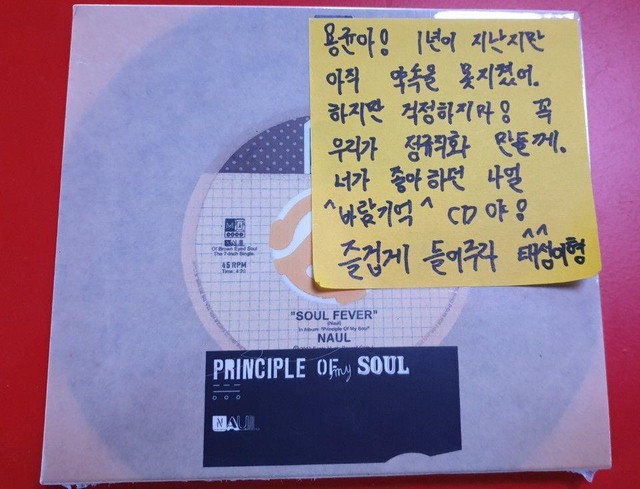 용균아! 1년이 지난지만
아직 약속을 못지켰어.
하지만 걱정하지마! 꼭
우리가 정규직화 만들께.
너가 좋아하던 나얼
^바람기억^ CD 야!
즐겁게 들어주라 태성이형
^^
Of Brown Eyed Soul
The 7-inch Single.
45 RPM
Time: 4:35
"SOUL FEVER"
(Naul)
In Album "Principle Of My Soul"
NAUL
PRINCIPLE OF my SOUL
NAUL